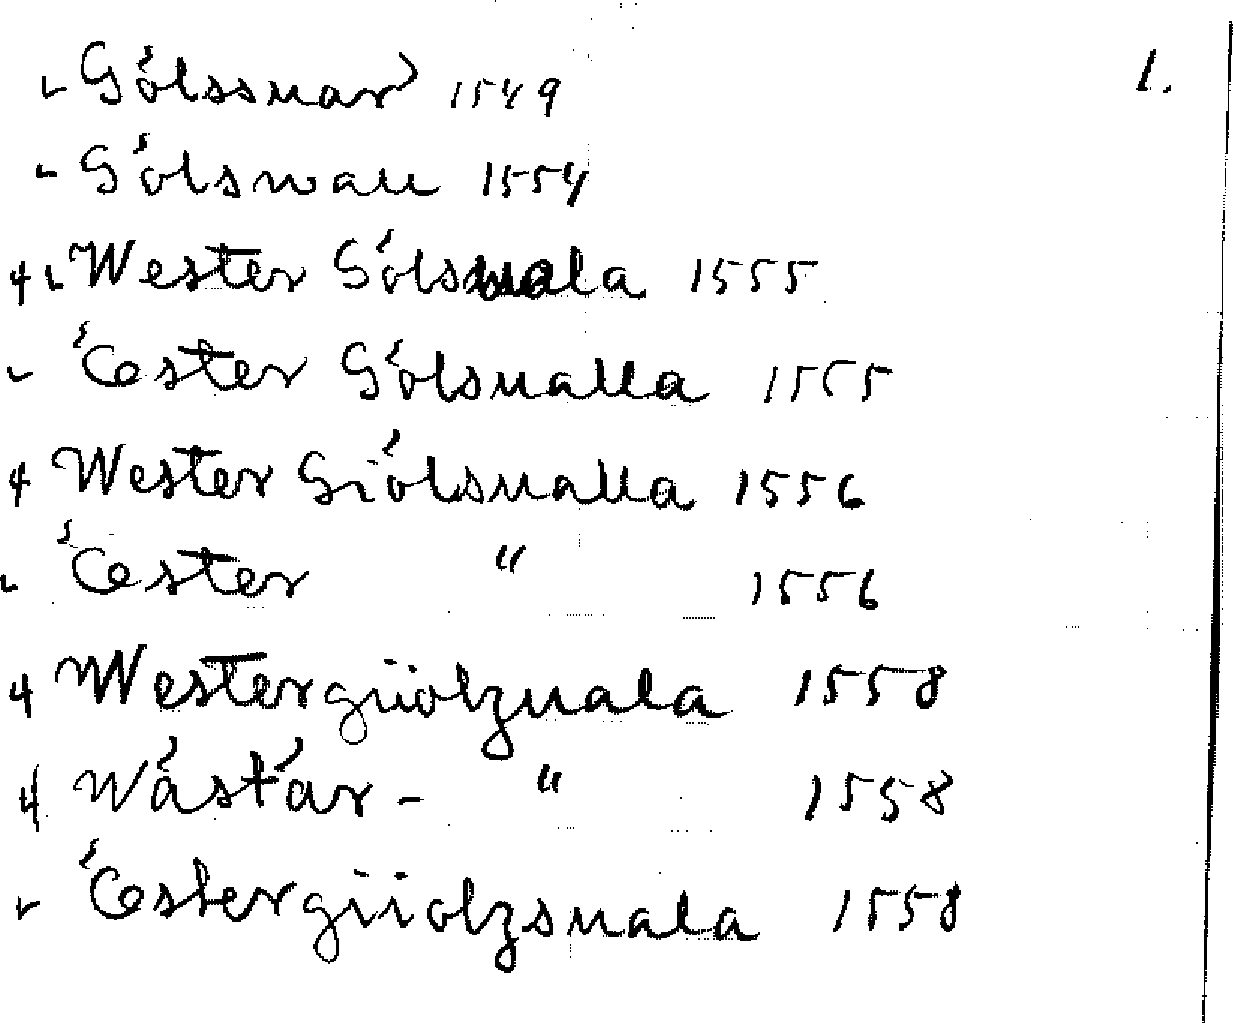 Gölssuar 1549 1.
Gölsuall 1554
4 Wester Gölsuala 1555
Œster Gölsualla 1555
4 Wester Giölsualla 1556
Œster " 1556
4 Westergiiolzuala 1558
4 Wästär- " 1558
Œstergiiolzsuala 1558